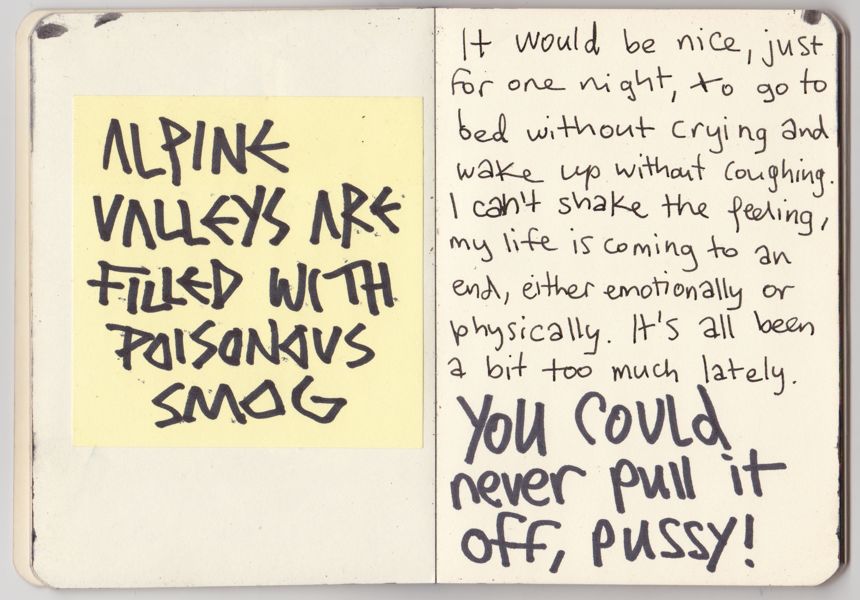 ALPINE
VALLEYS ARE
FILLED WITH
POISONOUS
SMOG
It would be nice, just
for one night, to go to
bed without crying and
wake up without coughing.
I can't shake the feeling,
my life is coming to an
end, either emotionally or
physically. It's all been
a bit too much lately.
YOU COULD
never pull it
off, pussy!